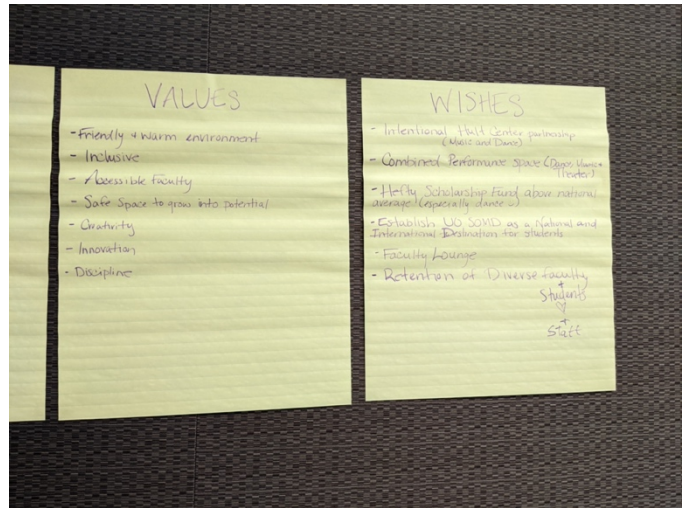 VALUES
- Friendly + Warm environment
- Inclusive
- Accessible Faculty
- Safe Space to grow into potential
- Creativity
- Innovation
- Discipline
WISHES
- Intentional Hult Center partnership
(Music and Dance)
- Combined Performance space (Dance Music +
Theater)
- Hefty Scholarship Fund above national
average (especially dance
- Establish UO SOMD as a National and
International Destination for students
- Faculty Lounge
- Retention of Diverse faculty
+
Students
+
Staff